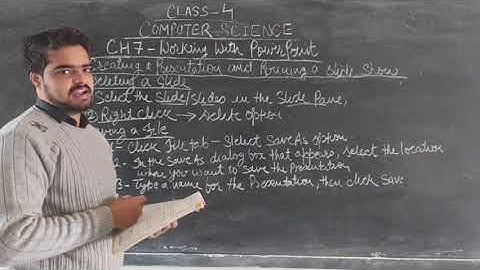 CLASS-4
COMPUTER SCIENCE
CH7-Working With PowerPoint
Creating a Presentation and Running a Slide Show
Deleting a Slide
Select the Slide/Slides in the Slide Pane,
② Right Click → select option
a File
1- Click File tab - Select Save As option
2- In the Save As dialog box that appears, select the location
where you want to save the Presentation
3- Type a name for the Presentation, then click Save